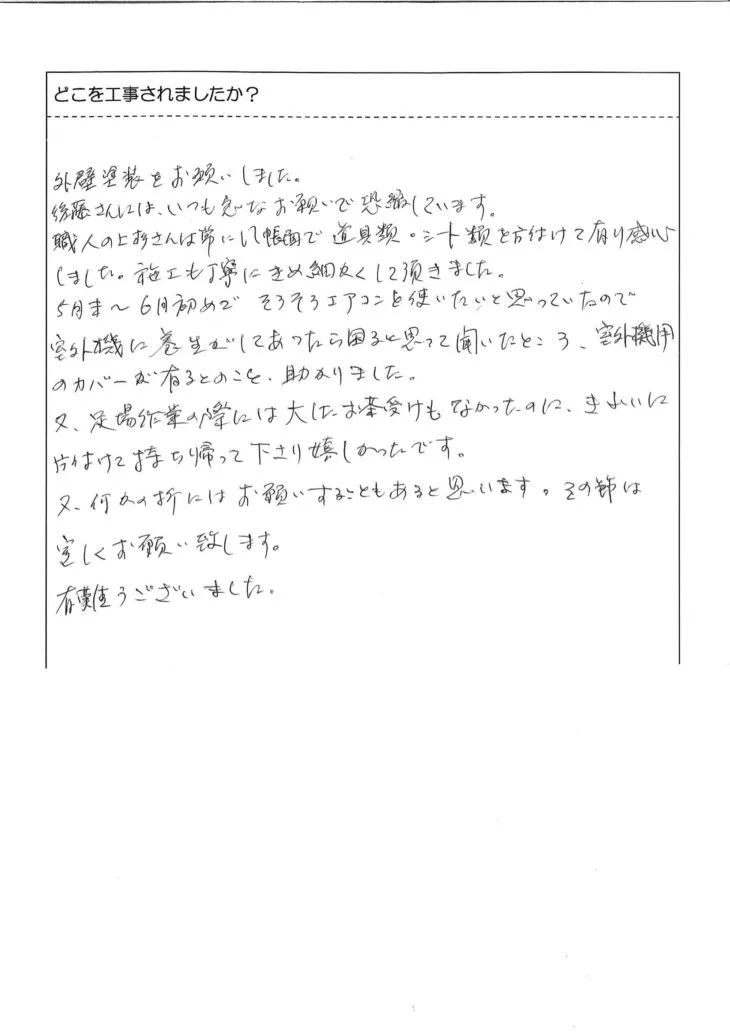 どこを工事されましたか？
外壁塗装をお願いしました。
後藤さんには、いつも急なお願いで恐縮しています。
職人の上杉さんは常に几帳面で道具類・シート類を片付けて有り感心
しました。施工も丁寧にきめ細かくして頂きました。
5月末～6月初めで そろそろエアコンを使いたいと思っていたので
室外機に養生がしてあったら困ると思って聞いたところ、室外機用
のカバーが有るとのこと、助かりました。
又、足場作業の際には大したお茶受けもなかったのに、きれいに
片付けて持ち帰って下さり嬉しかったです。
又、何かの折にはお願いすることもあると思います。その節は
宜しくお願い致します。
有難うございました。